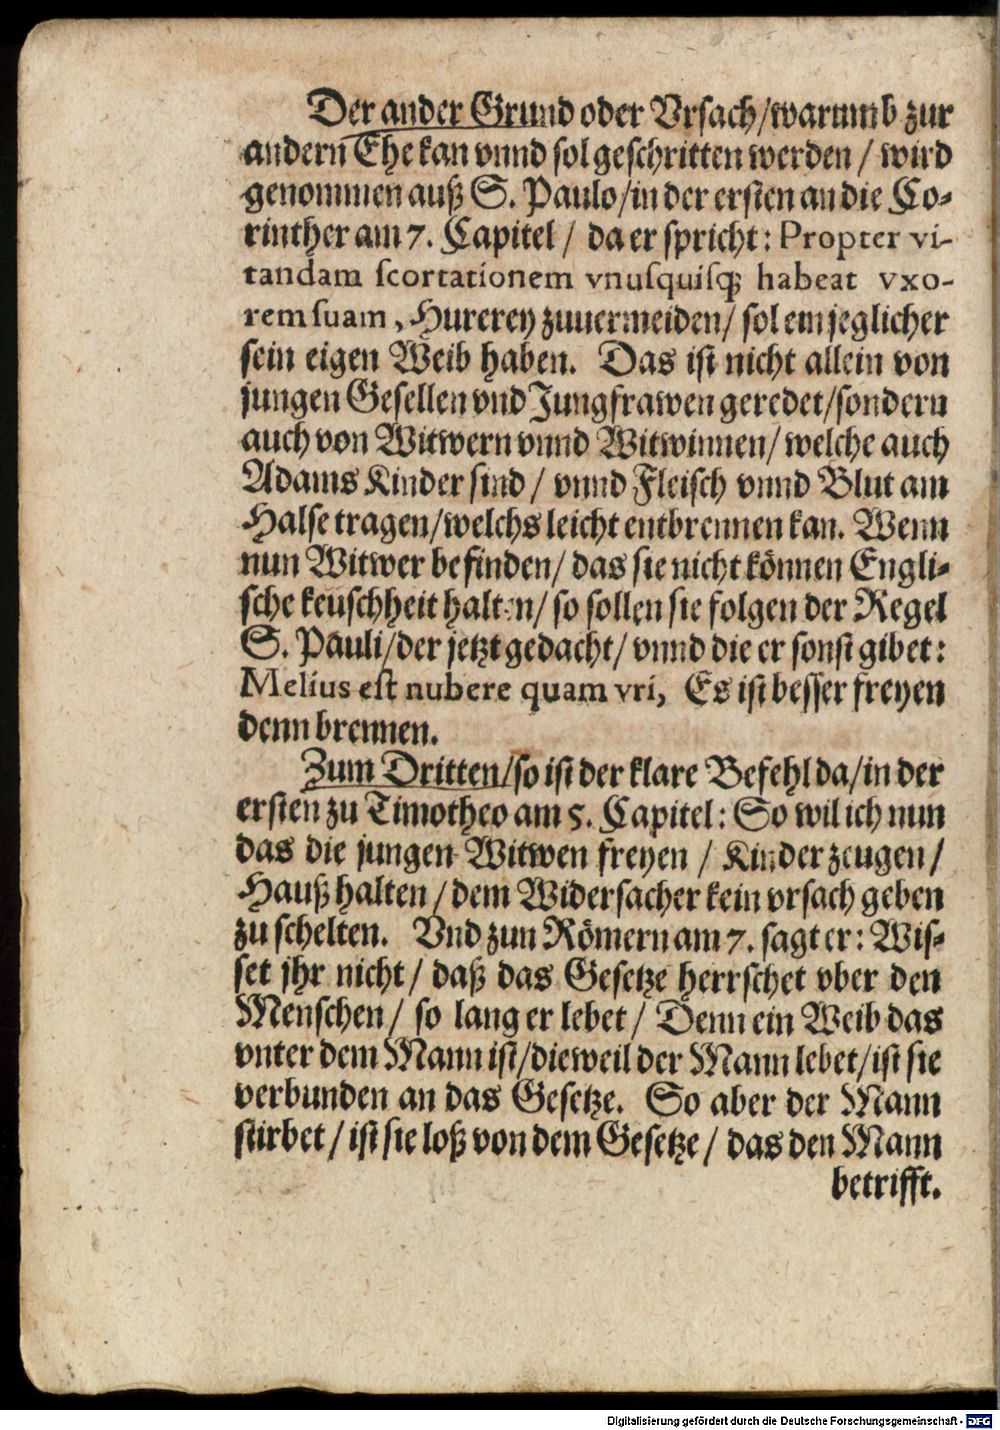 Der ander Grund oder Vrsach/warumb zur
andern Ehe kan vnnd sol geschritten werden / wird
genommen auß S. Paulo/in der ersten an die Co⸗
rinther am 7. Capitel / da er spricht: Propter vi-
tandam scortationem vnusquisq; habeat vxo-
rem suam, Hurerey zuuermeiden/ sol ein jeglicher
sein eigen Weib haben. Das ist nicht allein von
jungen Gesellen vnd Jungfrawen geredet/sondern
auch von Witwern vnnd Witwinnen/ welche auch
Adams Kinder sind / vnnd Fleisch vnnd Blut am
Halse tragen/welchs leicht entbrennen kan. Wenn
nun Witwer befinden/ das sie nicht können Engli⸗
sche keuschheit halten/ so sollen sie folgen der Regel
S. Pauli/der jetzt gedacht/ vnnd die er sonst gibet:
Melius est nubere quam vri, Es ist besser freyen
denn brennen.
Zum Dritten/so ist der klare Befehl da/in der
ersten zu Timotheo am 5. Capitel: So wil ich nun
das die jungen Witwen freyen / Kinder zeugen /
Hauß halten / dem Widersacher kein vrsach geben
zu schelten. Vnd zun Römern am 7. sagt er: Wis⸗
set jhr nicht / daß das Gesetze herrschet vber den
Menschen / so lang er lebet / Denn ein Weib das
vnter dem Mann ist/dieweil der Mann lebet/ist sie
verbunden an das Gesetze. So aber der Mann
stirbet / ist sie loß von dem Gesetze / das den Mann
betrifft.
Digitalisierung gefördert durch die Deutsche Forschungsgemeinschaft - DFG